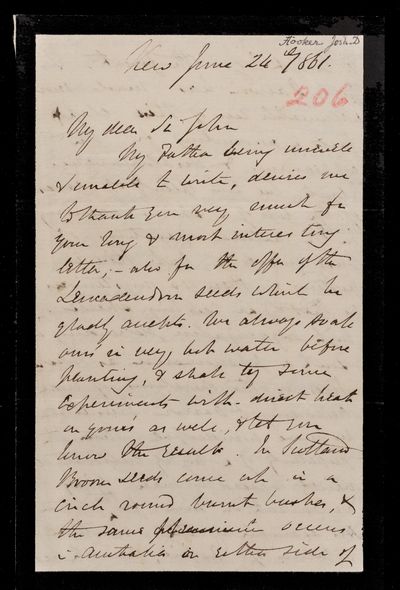 Hooker, Josh. D
Kew June 24th/1861.
206
My dear Sir John
My Father being unwell
& unable to write, desires me
to thank you very much for
your long & most interesting
letter, – also for the offer of the
Leucadendron seeds which he
gladly accepts. We always soak
ours in very hot water before
planting, & shall try some
experiments with direct heat
on yours as well, & let you
know the results. In Scotland
Broom seeds come up in a
circle round burnt bushes, &
the same occurs
in Australia on either side of